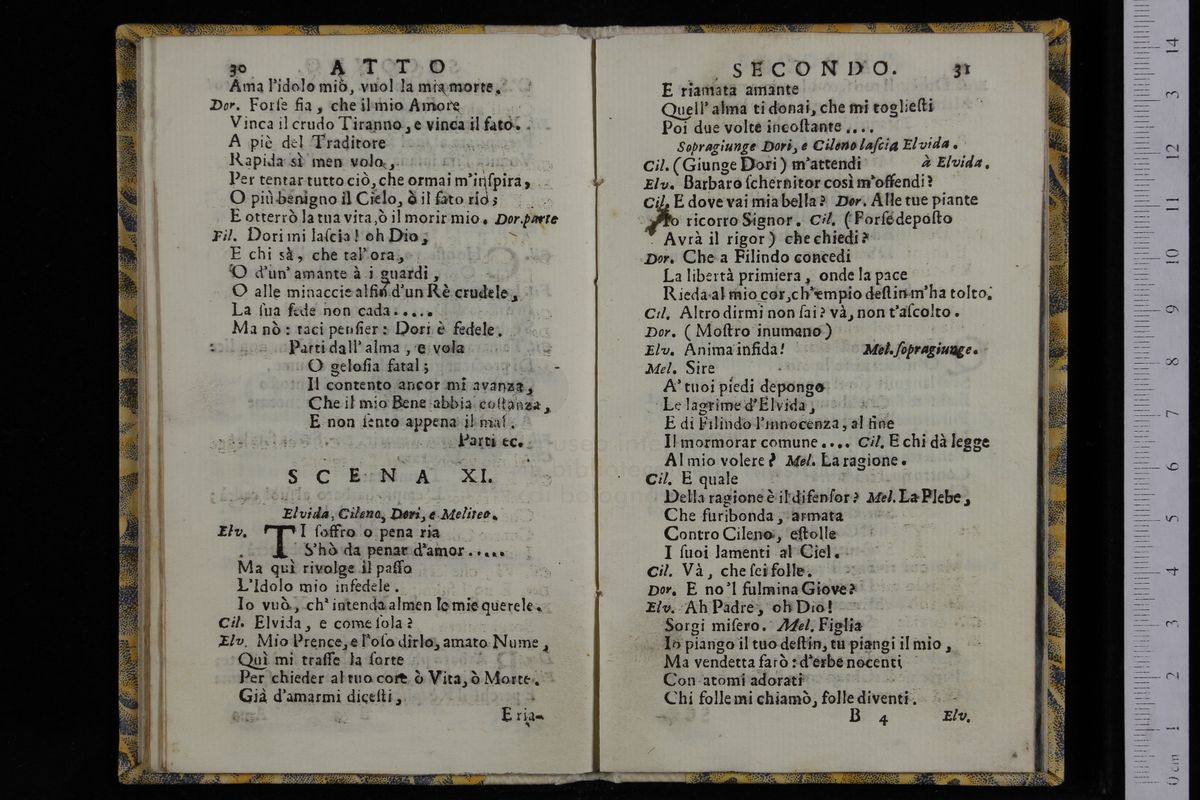 30 ATTO
Ama l'idolo miò, vuol la mia morte.
Dor. Forſe fia, che il mio Amore
Vinca il crudo Tiranno, e vinca il fatò.
A piè del Traditore
Rapida sì men volo,
Per tentar tutto ciò, che ormai m'inſpira,
O più benigno il Cielo, ò il fato rio;
E otterrò la tua vita, ò il morir mio. Dor. parte
Fil. Dori mi laſcia! oh Dio,
E chi sà, che tal' ora,
O d'un' amante à i guardi,
O alle minaccie alfin d'un Rè crudele,
La ſua fede non cada.....
Ma nò: taci penſier: Dori è fedele.
Parti dall' alma, e vola
O geloſia fatal;
Il contento ancor mi avanza,
Che il mio Bene abbia coſtanza,
E non ſento appena il mal.
Parti ec.
SCENA XI.
Elvida, Cileno, Dori, e Meliteo.
Elv. TI ſoffro o pena ria
S'hò da penar d'amor.....
Ma quì rivolge il paſſo
L'Idolo mio infedele.
Io vuò, ch' intenda almen le mie querele.
Cil. Elvida, e come ſola?
Elv. Mio Prence, e l'oſo dirlo, amato Nume,
Quì mi traſſe la ſorte
Per chieder al tuo cor ò Vita, ò Morte.
Già d'amarmi diceſti,
E ria-
SECONDO. 31
E riamata amante
Quell' alma ti donai, che mi toglieſti
Poi due volte incoſtante....
Sopragiunge Dori, e Cileno laſcia Elvida.
Cil. (Giunge Dori) m'attendi à Elvida.
Elv. Barbaro ſchernitor così m'offendi?
Cil. E dove vai mia bella? Dor. Alle tue piante
Io ricorro Signor. Cil. (Forſe depoſto
Avrà il rigor) che chiedi?
Dor. Che a Filindo concedi
La libertà primiera, onde la pace
Rieda al mio cor, ch'empio deſtin m'ha tolto.
Cil. Altro dirmi non ſai? và, non t'aſcolto.
Dor. (Moſtro inumano)
Elv. Anima infida! Mel. ſopragiunge.
Mel. Sire
A' tuoi piedi depongo
Le lagrime d'Elvida,
E di Filindo l'innocenza, al fine
Il mormorar comune.... Cil. E chi dà legge
Al mio volere? Mel. La ragione.
Cil. E quale
Della ragione è il difenſor? Mel. La Plebe,
Che furibonda, armata
Contro Cileno, eſtolle
I ſuoi lamenti al Ciel.
Cil. Và, che ſei folle.
Dor. E no'l fulmina Giove?
Elv. Ah Padre, oh Dio!
Sorgi miſero. Mel. Figlia
Io piango il tuo deſtin, tu piangi il mio,
Ma vendetta farò: d'erbe nocenti
Con atomi adorati
Chi folle mi chiamò, folle diventi.
B 4 Elv.